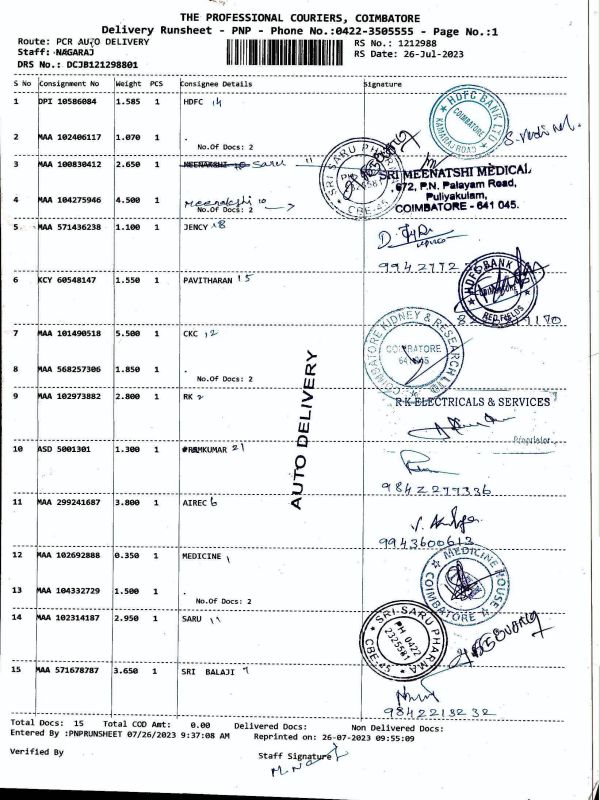 THE PROFESSIONAL COURIERS, COIMBATORE
Delivery Runsheet - PNP - Phone No.:0422-3505555 - Page No.:1
Route: PCR AUTO DELIVERY
Staff: NAGARAJ
DRS No.: DCJB121298801
RS No.: 1212988
RS Date: 26-Jul-2023
S No Consignment No Weight PCS Consignee Details Signature
1 DPI 10586084 1.585 1 HDFC 14
HDFC BANK LTD COIMBATORE
2 MAA 102406117 1.070 1 .
No.Of Docs: 2
3 MAA 100830412 2.650 1 MEENAKSHI Saru 11
SRI SARU PHARMA CBE-45
SRI MEENATSHI MEDICAL
672, P.N. Palayam Road,
Puliyakulam,
COIMBATORE - 641 045.
4 MAA 104275946 4.500 1 Meenakshi 10
No.Of Docs: 2
5 MAA 571436238 1.100 1 JENCY 18
6 KCY 60548147 1.550 1 PAVITHARAN 15
HDFC BANK COIMBATORE RED FIELDS
7 MAA 101490518 5.500 1 CKC 12
COIMBATORE KIDNEY & RESEARCH
COIMBATORE
8 MAA 568257306 1.850 1 .
No.Of Docs: 2
AUTO DELIVERY
9 MAA 102973882 2.800 1 RK 2
R K ELECTRICALS & SERVICES
Proprietor
10 ASD 5001301 1.300 1 RAMKUMAR 21
9842277336
11 MAA 299241687 3.800 1 AIREC 6
9943600613
12 MAA 102692888 0.350 1 MEDICINE 1
MEDICINE HOUSE COIMBATORE
13 MAA 104332729 1.500 1 .
No.Of Docs: 2
14 MAA 102314187 2.950 1 SARU 11
SRI SARU PHARMA PH 0422 2325581 CBE-45
15 MAA 571678787 3.650 1 SRI BALAJI 7
9842213232
Total Docs: 15 Total COD Amt: 0.00 Delivered Docs: Non Delivered Docs:
Entered By :PNPRUNSHEET 07/26/2023 9:37:08 AM Reprinted on: 26-07-2023 09:55:09
Verified By Staff Signature